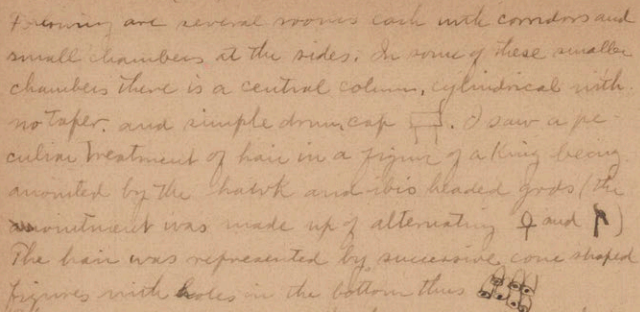 are several rooms each with corridors and
small chambers at the sides. In some of these smaller
chambers there is a central column, cylindrical with
no taper. and simple drum cap . I saw a pe-
culiar treatment of hair in a figure of a King being
anointed by the hawk and ibis headed gods (the
anointment was made up of alternating ♀ and )
The hair was represented by successive cone shaped
figures with holes in the bottom thus